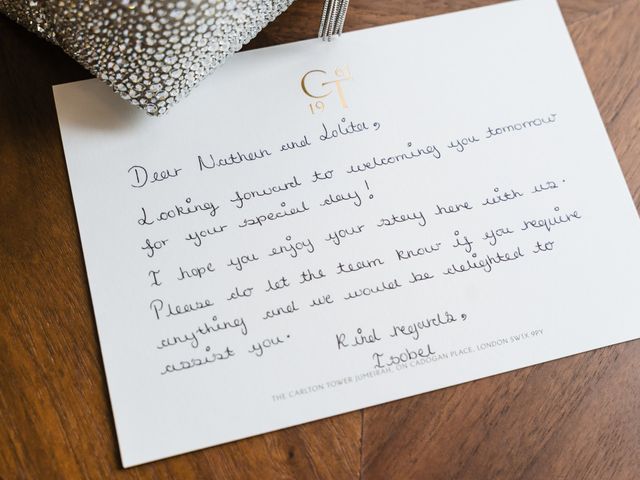 CT
1961
Dear Nathan and Lolita,
Looking forward to welcoming you tomorrow
for your special day!
I hope you enjoy your stay here with us.
Please do let the team know if you require
anything and we would be delighted to
assist you.
Kind regards,
Isobel
THE CARLTON TOWER JUMEIRAH, ON CADOGAN PLACE, LONDON SW1X 9PY